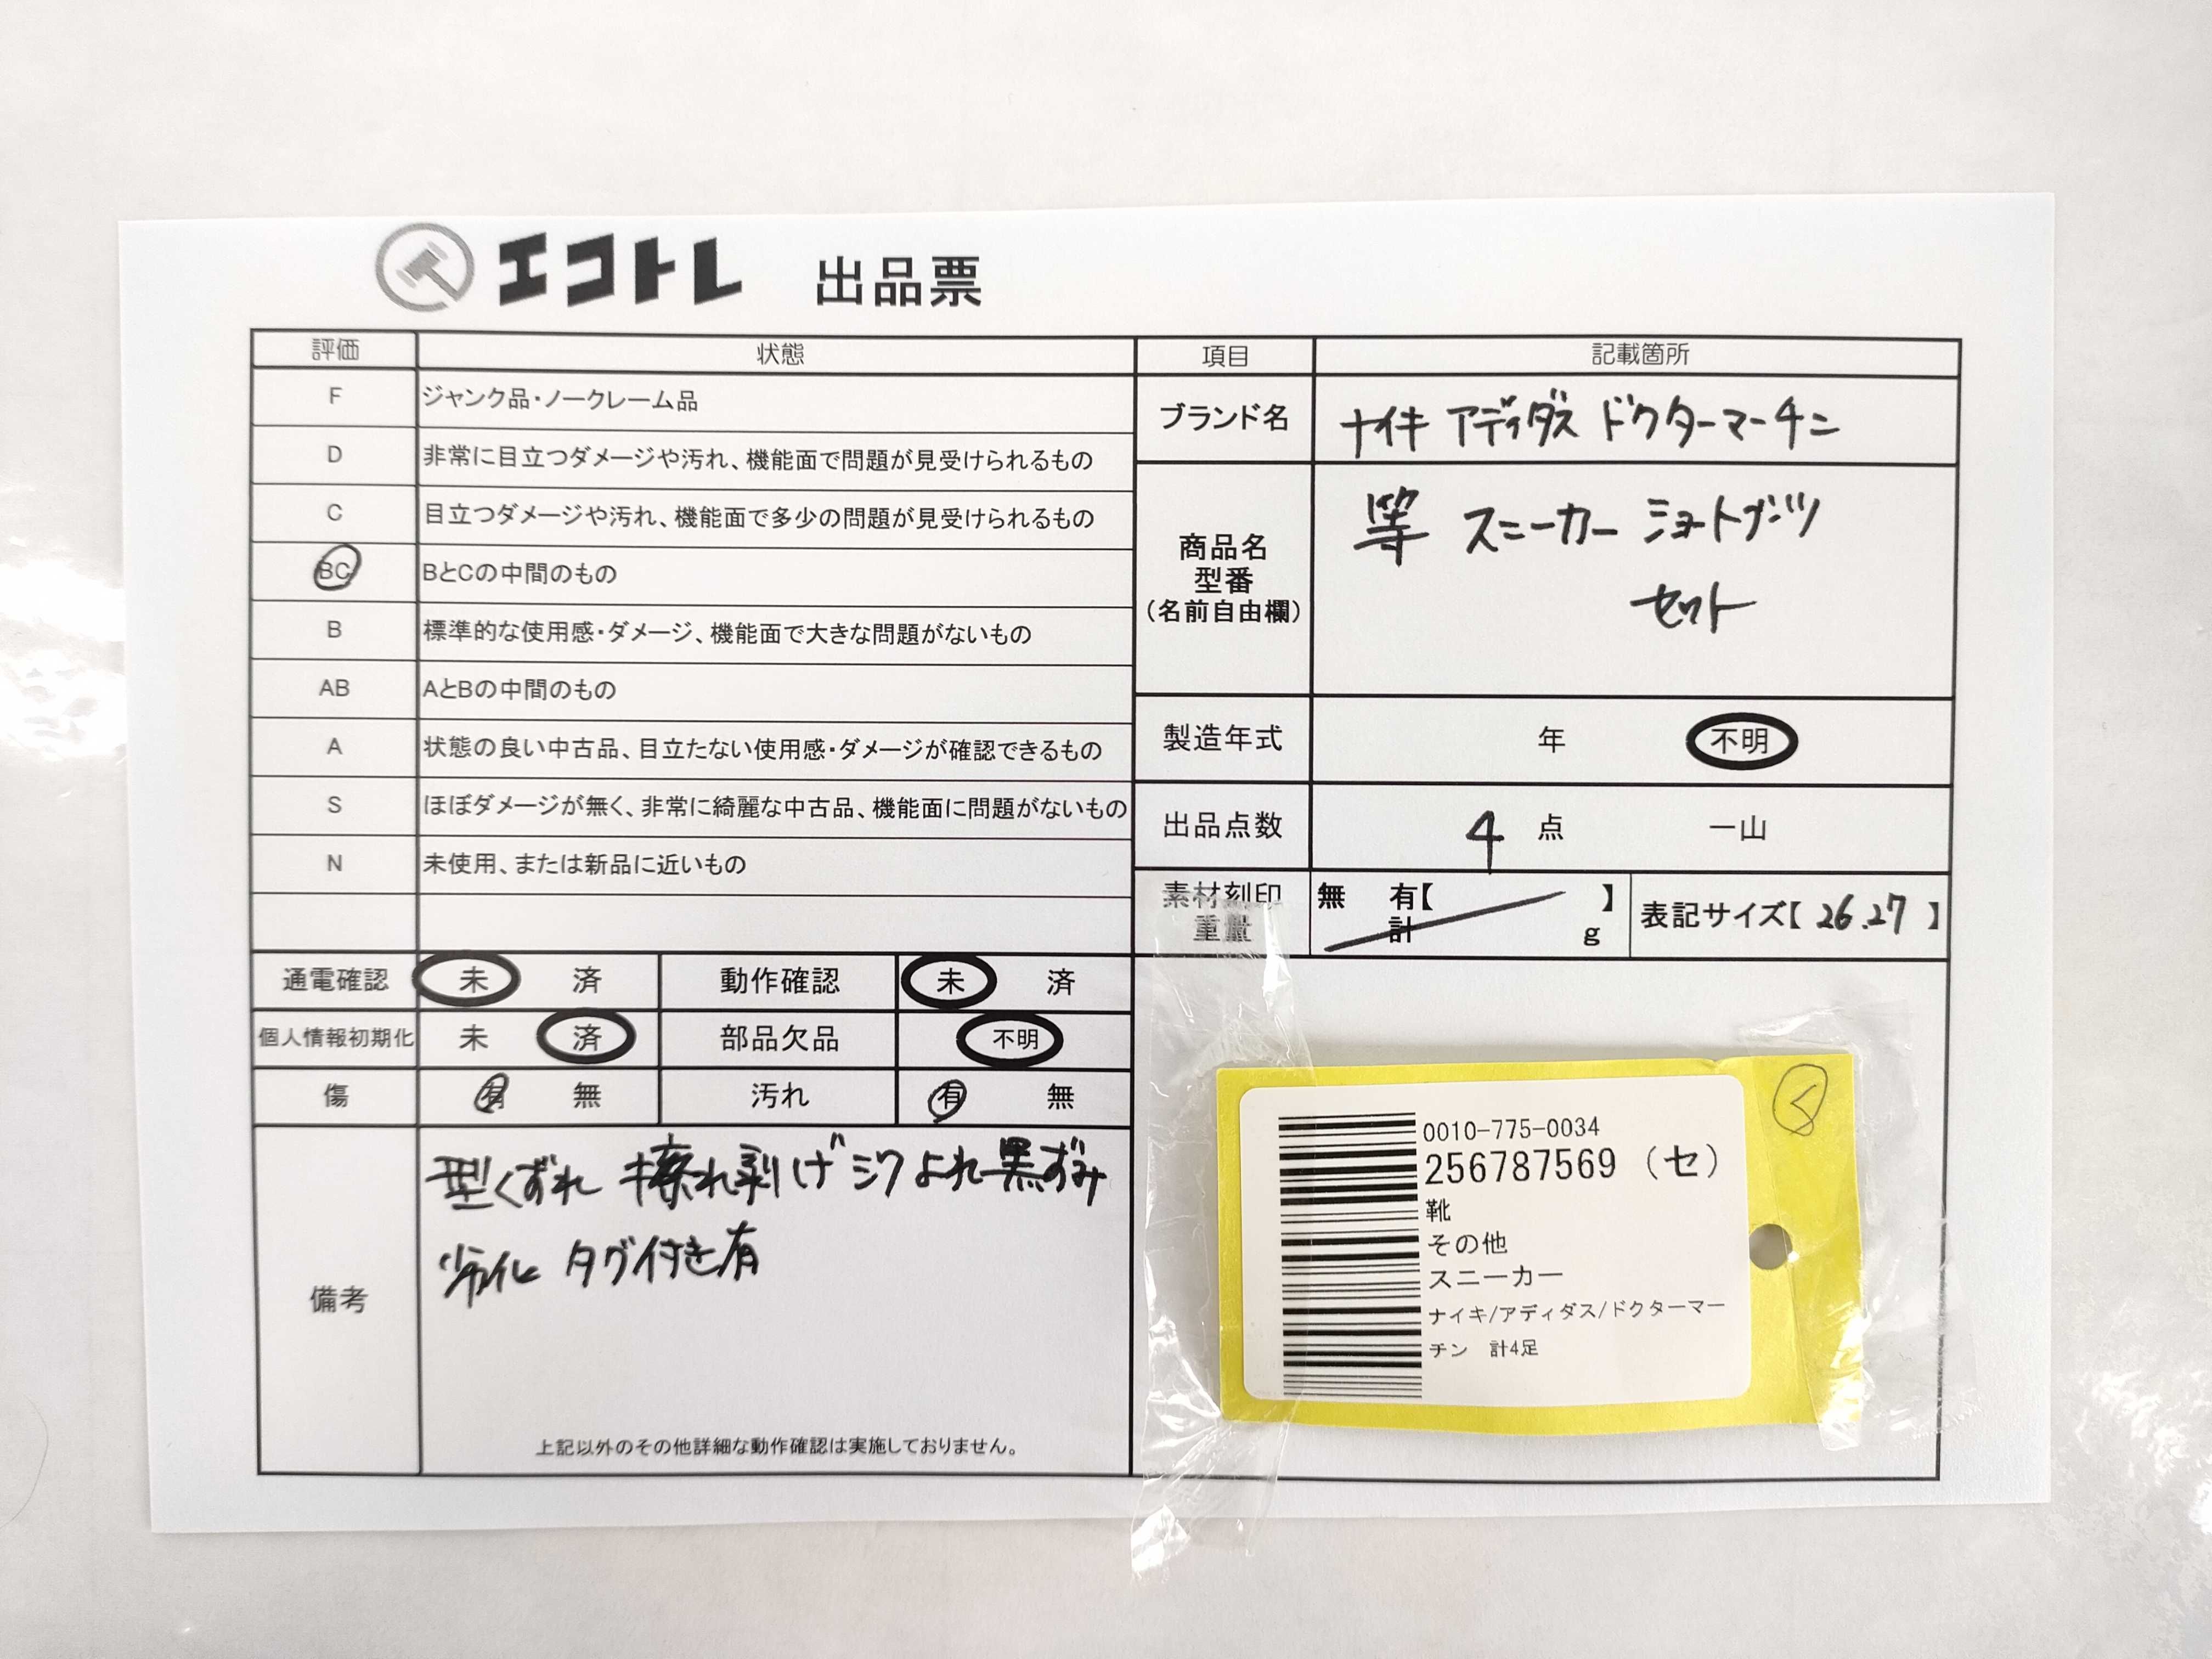 エコトレ 出品票
評価 状態
F ジャンク品・ノークレーム品
D 非常に目立つダメージや汚れ、機能面で問題が見受けられるもの
C 目立つダメージや汚れ、機能面で多少の問題が見受けられるもの
BC BとCの中間のもの
B 標準的な使用感・ダメージ、機能面で大きな問題がないもの
AB AとBの中間のもの
A 状態の良い中古品、目立たない使用感・ダメージが確認できるもの
S ほぼダメージが無く、非常に綺麗な中古品、機能面に問題がないもの
N 未使用、または新品に近いもの
通電確認 未 済 動作確認 未 済
個人情報初期化 未 済 部品欠品 不明
傷 有 無 汚れ 有 無
備考
型くずれ 擦れ剥げ シワ よれ 黒ずみ
劣化 タグ付き有
上記以外のその他詳細な動作確認は実施しておりません。
項目 記載箇所
ブランド名 ナイキ アディダス ドクターマーチン
商品名
型番
(名前自由欄)
等 スニーカー ショートブーツ
セット
製造年式 年 不明
出品点数 4 点 一山
素材刻印 無 有【 】
重量 計 g
表記サイズ【 26.27 】
0010-775-0034
256787569 (セ)
靴
その他
スニーカー
ナイキ/アディダス/ドクターマー
チン 計4足
く